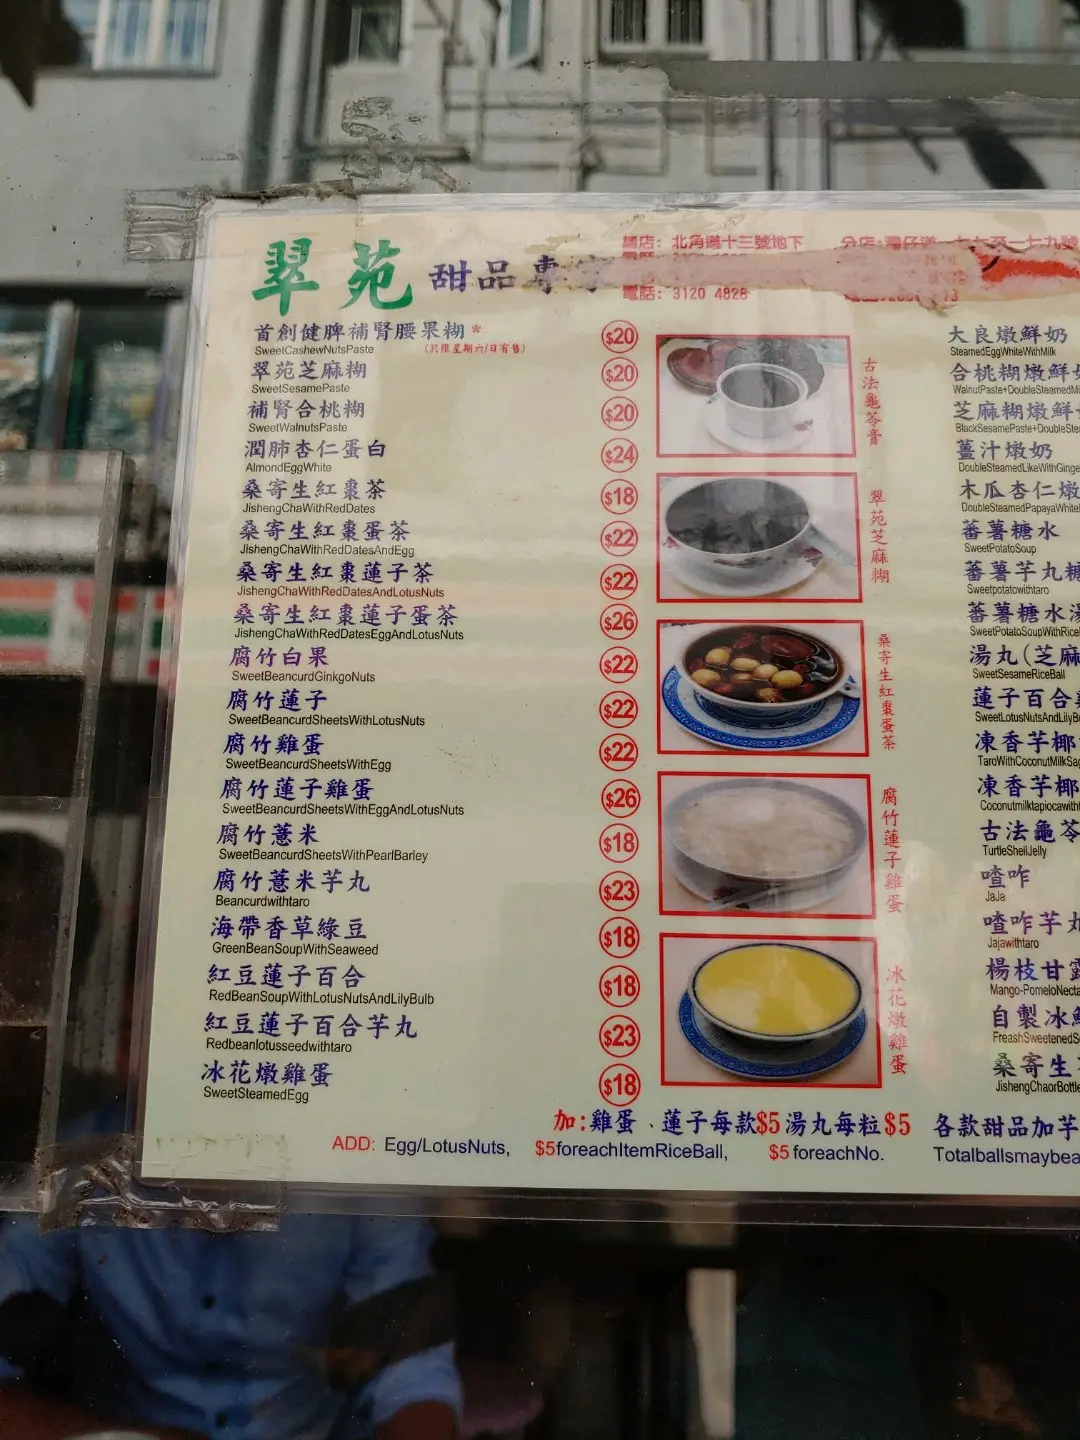 翠苑 甜品專家
北角道十三號地下
電話: 3120 4828
首創健脾補腎腰果糊 * $20
SweetCashewNutsPaste (只限星期六/日有售)
翠苑芝麻糊 $20
SweetSesamePaste
補腎合桃糊 $20
SweetWalnutsPaste
潤肺杏仁蛋白 $24
AlmondEggWhite
桑寄生紅棗茶 $18
JishengChaWithRedDates
桑寄生紅棗蛋茶 $22
JishengChaWithRedDatesAndEgg
桑寄生紅棗蓮子茶 $22
JishengChaWithRedDatesAndLotusNuts
桑寄生紅棗蓮子蛋茶 $26
JishengChaWithRedDatesEggAndLotusNuts
腐竹白果 $22
SweetBeancurdGinkgoNuts
腐竹蓮子 $22
SweetBeancurdSheetsWithLotusNuts
腐竹雞蛋 $22
SweetBeancurdSheetsWithEgg
腐竹蓮子雞蛋 $26
SweetBeancurdSheetsWithEggAndLotusNuts
腐竹薏米 $18
SweetBeancurdSheetsWithPearlBarley
腐竹薏米芋丸 $23
Beancurdwithtaro
海帶香草綠豆 $18
GreenBeanSoupWithSeaweed
紅豆蓮子百合 $18
RedBeanSoupWithLotusNutsAndLilyBulb
紅豆蓮子百合芋丸 $23
Redbeanlotusseedwithtaro
冰花燉雞蛋 $18
SweetSteamedEgg
古法龜苓膏
翠苑芝麻糊
桑寄生紅棗蛋茶
腐竹蓮子雞蛋
冰花燉雞蛋
大良燉鮮奶
SteamedEggWhiteWithMilk
合桃糊燉鮮
WalnutPaste+DoubleSteamedMi
芝麻糊燉鮮
BlackSesamePaste+DoubleSte
薑汁燉奶
DoubleSteamedLikeWithGinge
木瓜杏仁燉
DoubleSteamedPapayaWhite
蕃薯糖水
SweetPotatoSoup
蕃薯芋丸糖
Sweetpotatowithtaro
蕃薯糖水湯
SweetPotatoSoupWithRice
湯丸(芝麻
SweetSesameRiceBall
蓮子百合
SweetLotusNutsAndLilyBu
凍香芋椰
TaroWithCoconutMilkSag
凍香芋椰
Coconutmilktapiocawith
古法龜苓
TurtleShellJelly
喳咋
JaJa
喳咋芋丸
Jajawithtaro
楊枝甘露
Mango-PomeloNecta
自製冰鮮
FreashSweetenedS
桑寄生
JishengChaorBottle
加: 雞蛋、蓮子每款$5 湯丸每粒$5 各款甜品加芋
ADD: Egg/LotusNuts, $5foreachItemRiceBall, $5foreachNo. Totalballsmaybea